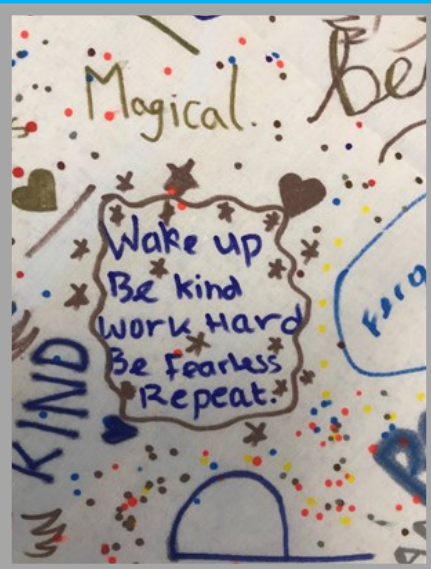 Magical.
Be
Wake up
Be kind
Work Hard
Be Fearless
Repeat.
KIND